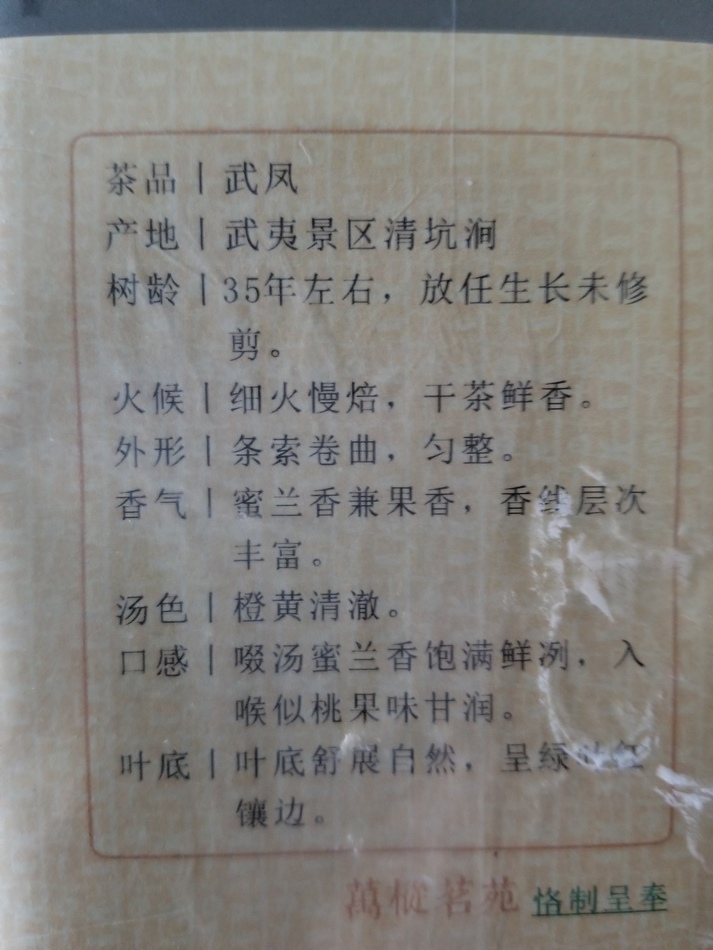 茶品|武凤
产地|武夷景区清坑涧
树龄|35年左右，放任生长未修
剪。
火候|细火慢焙，干茶鲜香。
外形|条索卷曲，匀整。
香气|蜜兰香兼果香，香线层次
丰富。
汤色|橙黄清澈。
口感|啜汤蜜兰香饱满鲜冽，入
喉似桃果味甘润。
叶底|叶底舒展自然，呈绿叶红
镶边。
萬樅茗苑 恪制呈奉